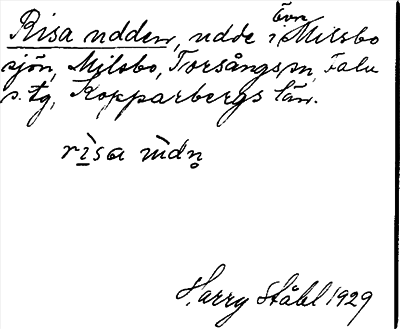 Risa udden, udde i Övr. Milsbo
sjön, Milsbo, Torsångs sn, Falu
s. tg, Kopparbergs län.
rìsa ùdn̥
Harry Ståhl 1929